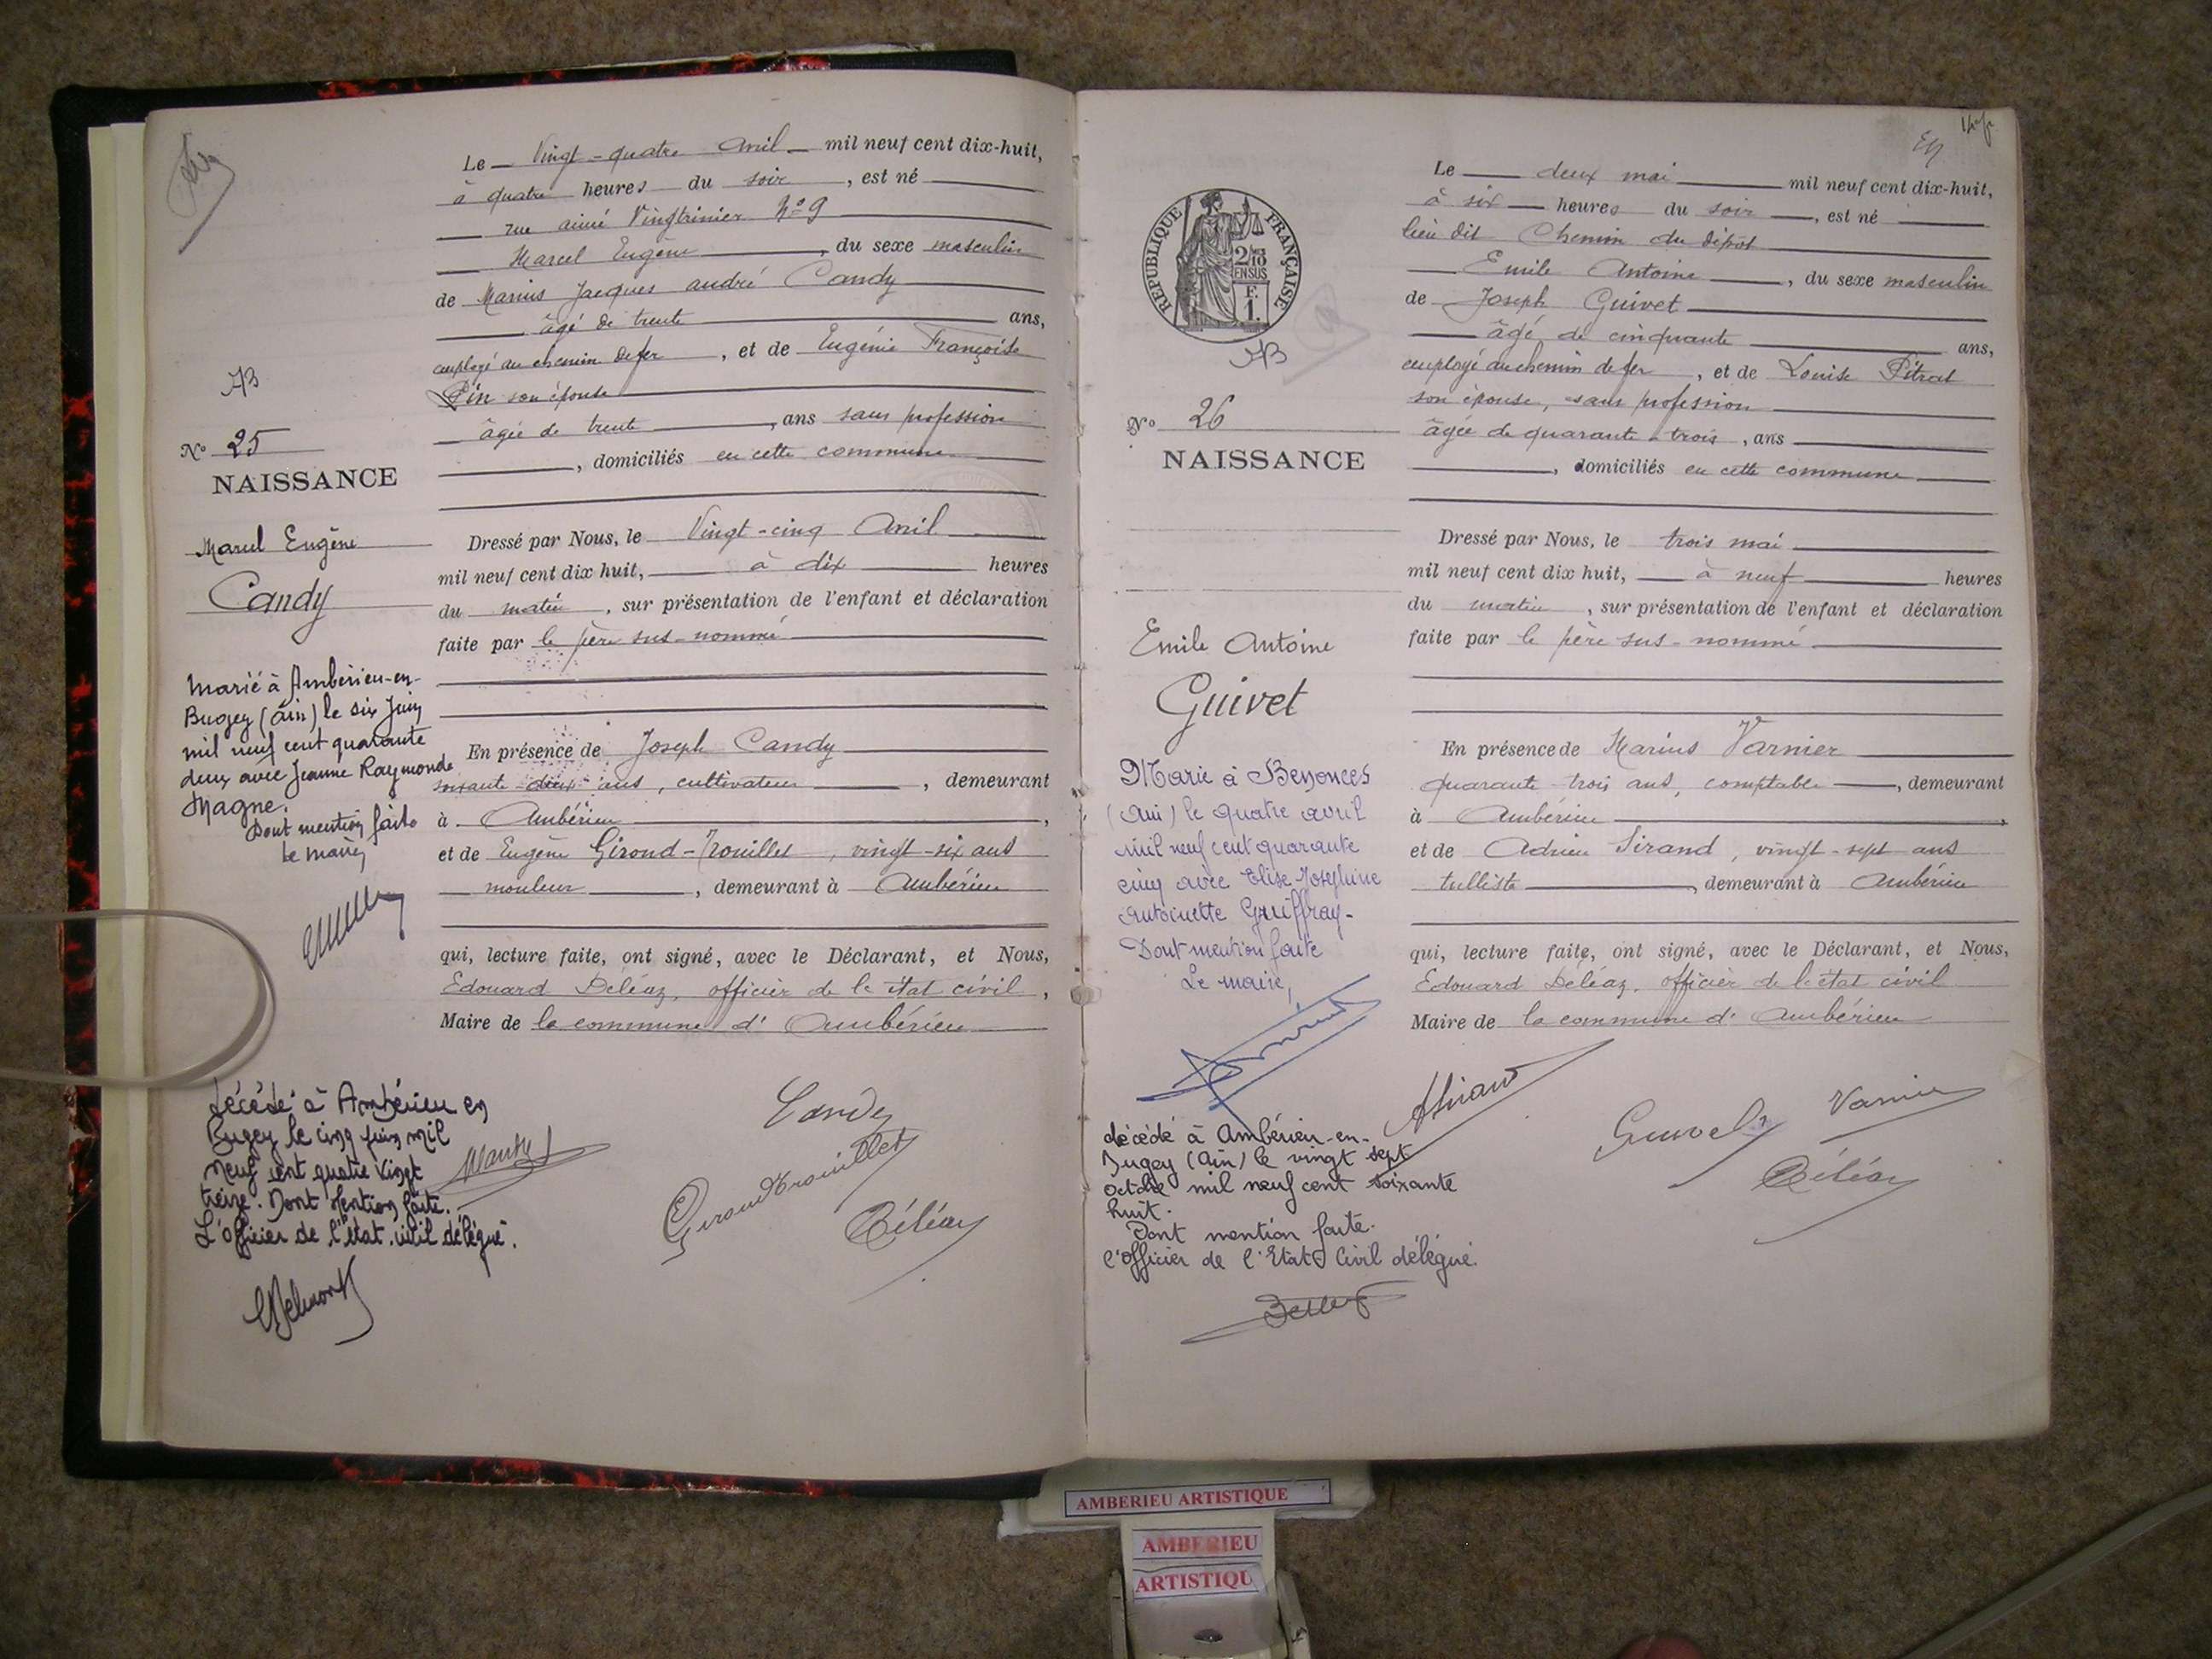 Le vingt-quatre avril mil neuf cent dix-huit,
à quatre heures du soir, est né
rue aimé Vingtrinier N° 9
Marcel Eugène, du sexe masculin
de Marius Jacques andré Candy
âgé de trente ans,
employé au chemin de fer, et de Eugénie Françoise
Pin son épouse
âgée de trente, ans sans profession
, domiciliés en cette commune
N° 25
NAISSANCE
Marcel Eugène
Candy
Dressé par Nous, le Vingt-cinq Avril
mil neuf cent dix huit, à dix heures
du matin, sur présentation de l'enfant et déclaration
faite par le père sus-nommé
Marié à Ambérieu-en-
Bugey (Ain) le six Juin
mil neuf cent quarante
deux avec Jeanne Raymonde
Magne.
Dont mention faite
Le maire,
En présence de Joseph Candy
soixante-deux ans, cultivateur, demeurant
à Ambérieu,
et de Eugène Giroud-Trouillet, vingt-six ans
mouleur, demeurant à Ambérieu
qui, lecture faite, ont signé, avec le Déclarant, et Nous,
Edouard Deléaz, officier de le état civil,
Maire de la commune d'Ambérieu
décédé à Ambérieu en
Bugey le cinq juin mil
neuf cent quatre vingt
treize. Dont Mention faite.
L'officier de l'état civil délégué.
Candy
GiroudTrouillet
Déléaz
Le deux mai mil neuf cent dix-huit,
à six heures du soir, est né
lieu dit Chemin du dépôt
Emile Antoine, du sexe masculin
de Joseph Guivet
âgé de cinquante ans,
employé au chemin de fer, et de Louise Pitrat
son épouse, sans profession
âgée de quarante-trois, ans
, domiciliés en cette commune
REPUBLIQUE FRANÇAISE
2/10
EN SUS
F.
1.
N° 26
NAISSANCE
Emile Antoine
Guivet
Dressé par Nous, le trois mai
mil neuf cent dix huit, à neuf heures
du matin, sur présentation de l'enfant et déclaration
faite par le père sus-nommé
Marié à
(Ain) le quatre avril
mil neuf cent quarante
cinq avec Elise Joséphine
Antoinette Guiffray-
Dont mention faite
Le maire,
En présence de Marius Varnier
quarante-trois ans, comptable, demeurant
à Ambérieu,
et de Adrien Sirand, vingt-sept ans
tulliste, demeurant à Ambérieu
qui, lecture faite, ont signé, avec le Déclarant, et Nous,
Edouard Deléaz, officier de l'état civil
Maire de la commune d'Ambérieu
décédé à Ambérieu-en-
Bugey (Ain) le vingt sept
octobre mil neuf cent soixante
huit.
Dont mention faite.
l'Officier de l'Etat Civil délégué.
ASirand
Guivet
Varnier
Déléaz
AMBERIEU ARTISTIQUE
AMBERIEU
ARTISTIQU